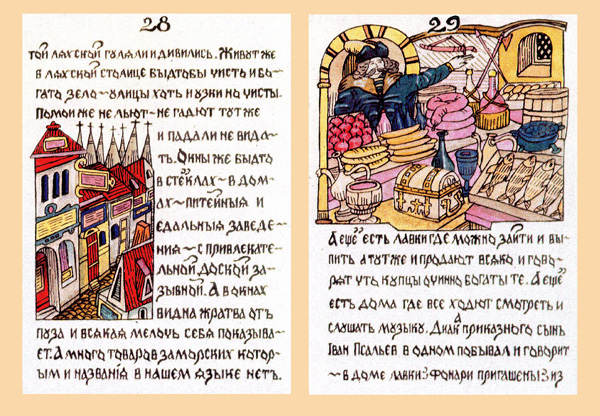 28
той ляхской гуляли и дивились. Живут же
в ляхской столице быдтобы чисто и бо~
гато зело~улицы хоть и узки но чисты.
Помои же не льют~не гадют тут же
и падали не вида~
ть. Окны же быдто
в стёклах~в дом~
ах~питейныя и
едальныя заведе~
ния~с привлекате~
льной доской за~
зывной. А в окнах
видна жратва отъ
пуза и всякая мелочь себя показыва~
ет. А много товаров заморских котор~
ым и названiя в нашем языке нетъ.
29
А ещё есть лавки где можно зайти и вы~
пить а тут же и продают всяко и гово~
рят что купцы очинно богаты те. А ещё
есть дома где все ходют смотреть и
слушать музыку. Диака приказного сынъ
Iван Псальев в одном побывал и говорит
~в доме лавки фонари пригашены из